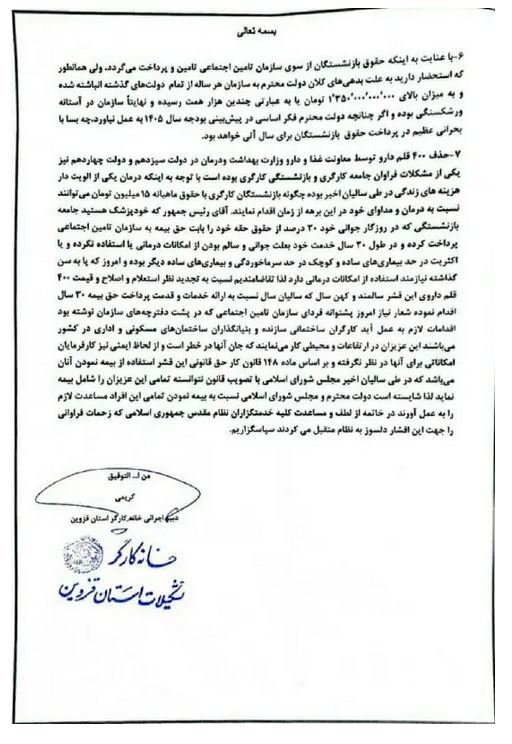 بسمه تعالی
۶-با عنایت به اینکه حقوق بازنشستگان از سوی سازمان تامین اجتماعی تامین و پرداخت می‌گردد، ولی همانطور
که استحضار دارید به علت بدهی‌های کلان دولت محترم به سازمان هر ساله از تمام دولت‌های گذشته انباشته شده
و به میزان بالای ۱٬۳۵۰٬۰۰۰٬۰۰۰٬۰۰۰ تومان یا به عبارتی چندین هزار همت رسیده و نهایتاً سازمان در آستانه
ورشکستگی بوده و اگر چنانچه دولت محترم فکر اساسی در پیش‌بینی بودجه سال ۱۴۰۵ به عمل نیاورد، چه بسا با
بحرانی عظیم در پرداخت حقوق بازنشستگان برای سال آتی خواهد بود.
۷-حذف ۴۰۰ قلم دارو توسط معاونت غذا و دارو وزارت بهداشت ودرمان در دولت سیزدهم و دولت چهاردهم نیز
یکی از مشکلات فراوان جامعه کارگری و بازنشستگی کارگری بوده است با توجه به اینکه درمان یکی از الویت دار
هزینه های زندگی در طی سالیان اخیر بوده چگونه بازنشستگان کارگری با حقوق ماهیانه ۱۵ میلیون تومان می‌توانند
نسبت به درمان و مداوای خود در این برهه از زمان اقدام نمایند. آقای رئیس جمهور که خودپزشک هستید جامعه
بازنشستگی که در روزگار جوانی خود ۳۰ درصد از حقوق حقه خود را بابت حق بیمه به سازمان تامین اجتماعی
پرداخت کرده و در طول ۳۰ سال خدمت خود بعلت جوانی و سالم بودن از امکانات درمانی یا استفاده نکرده و یا
اکثریت در حد بیماری‌های ساده و کوچک در حد سرماخوردگی و بیماری‌های ساده دیگر بوده و امروز که پا به سن
گذاشته نیازمند استفاده از امکانات درمانی دارد لذا تقاضامندیم نسبت به تجدید نظر استعلام و اصلاح و قیمت ۴۰۰
قلم داروی این قشر سالمند و کهن سال که سالیان سال نسبت به ارائه خدمات و قدمت پرداخت حق بیمه ۳۰ سال
اقدام نموده شعار نیاز امروز پشتوانه فردای سازمان تامین اجتماعی که در پشت دفترچه‌های سازمان نوشته بود
اقدامات لازم به عمل آید کارگران ساختمانی سازنده و بنیانگذاران ساختمان‌های مسکونی و اداری در کشور
می‌باشند این عزیزان در ارتفاعات و محیطی کار می‌نمایند که جان آنها در خطر است و از لحاظ ایمنی نیز کارفرمایان
امکاناتی برای آنها در نظر نگرفته و بر اساس ماده ۱۴۸ قانون کار حق قانونی این قشر استفاده از بیمه نمودن آنان
می‌باشد که در طی سالیان اخیر مجلس شورای اسلامی با تصویب قانون نتوانسته تمامی این عزیزان را شامل بیمه
نماید لذا شایسته است دولت محترم و مجلس شورای اسلامی نسبت به بیمه نمودن تمامی این افراد مساعدت لازم
را به عمل آورند در خاتمه از لطف و مساعدت کلیه خدمتگزاران نظام مقدس جمهوری اسلامی که زحمات فراوانی
را جهت این اقشار دلسوز به نظام متقبل می کردند سپاسگزاریم.
من ا... التوفیق
کریمی
دبیر اجرائی خانه کارگر استان قزوین
خانه کارگر
تشکیلات استان قزوین